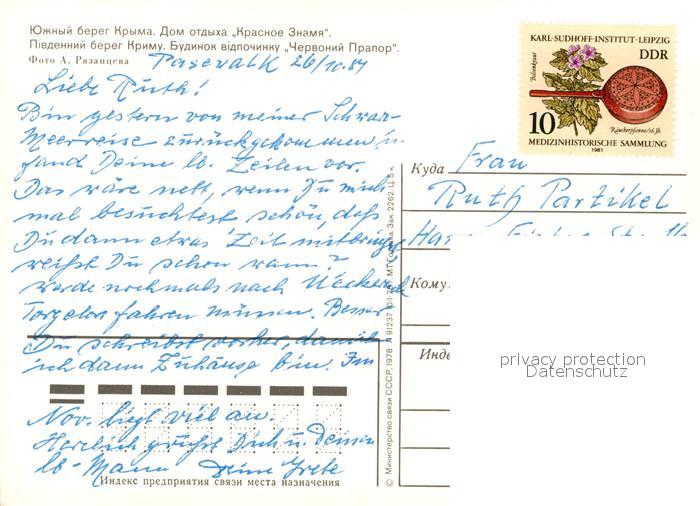 Южный берег Крыма. Дом отдыха „Красное Знамя“.
Південний берег Криму. Будинок відпочинку „Червоний Прапор“.
Фото А. Рязанцева
Pasewalk 26/10.81
Liebe Ruth!
Bin gestern von meiner Schwarz-
Meerreise zurückgekommen u.
fand Deine lb. Zeilen vor.
Das wäre nett, wenn Du mich
mal besuchtest schön, daß
Du dann etwas Zeit mitbringst
weißt Du schon wann?
werde nochmals nach
Torgelow fahren müssen. Besser
Du schreibst vorher, damit
ich dann Zuhause bin. Im
Nov. liegt viel an.
Herzlich grüßt Dich u. Deinen
lb. Mann Deine Grete
Индекс предприятия связи места назначения
© Министерство связи СССР, 1978
Зак. 2262. Ц. 5 к.
KARL-SUDHOFF-INSTITUT·LEIPZIG
DDR
Bilsenkraut
Räucherpfanne/16.Jh.
10
MEDIZINHISTORISCHE SAMMLUNG
1981
Куда
Frau
Ruth Partikel
Кому
Инде
privacy protection
Datenschutz